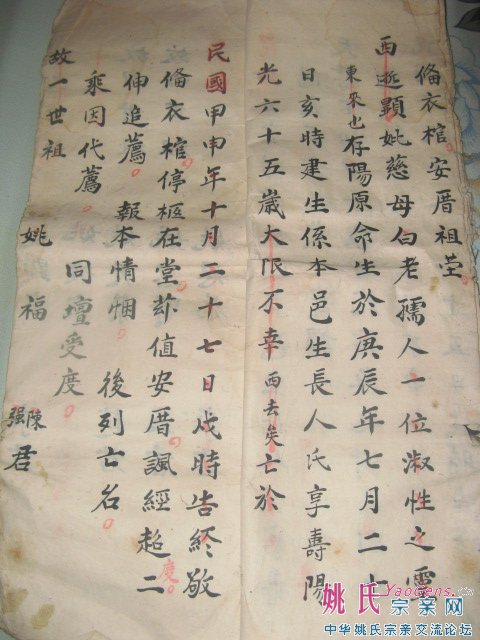 俻衣棺安厝祖茔
西逝顯妣慈母白老孺人一位淑性之靈
東來也存陽原命生於庚辰年七月二十
日亥時建生係本邑生長人氏享壽陽
光六十五歲大限不幸西去矣亡於
民國甲申年十月二十七日戌時告終敬
俻衣棺停柩在堂茆值安厝諷經超度二
伸追薦 報本情悃 後列亡名
乘因代薦 同壇受度
故一世祖 姚福 陳强君
姚氏宗亲网
YaoGens.cn
中华姚氏宗亲交流论坛